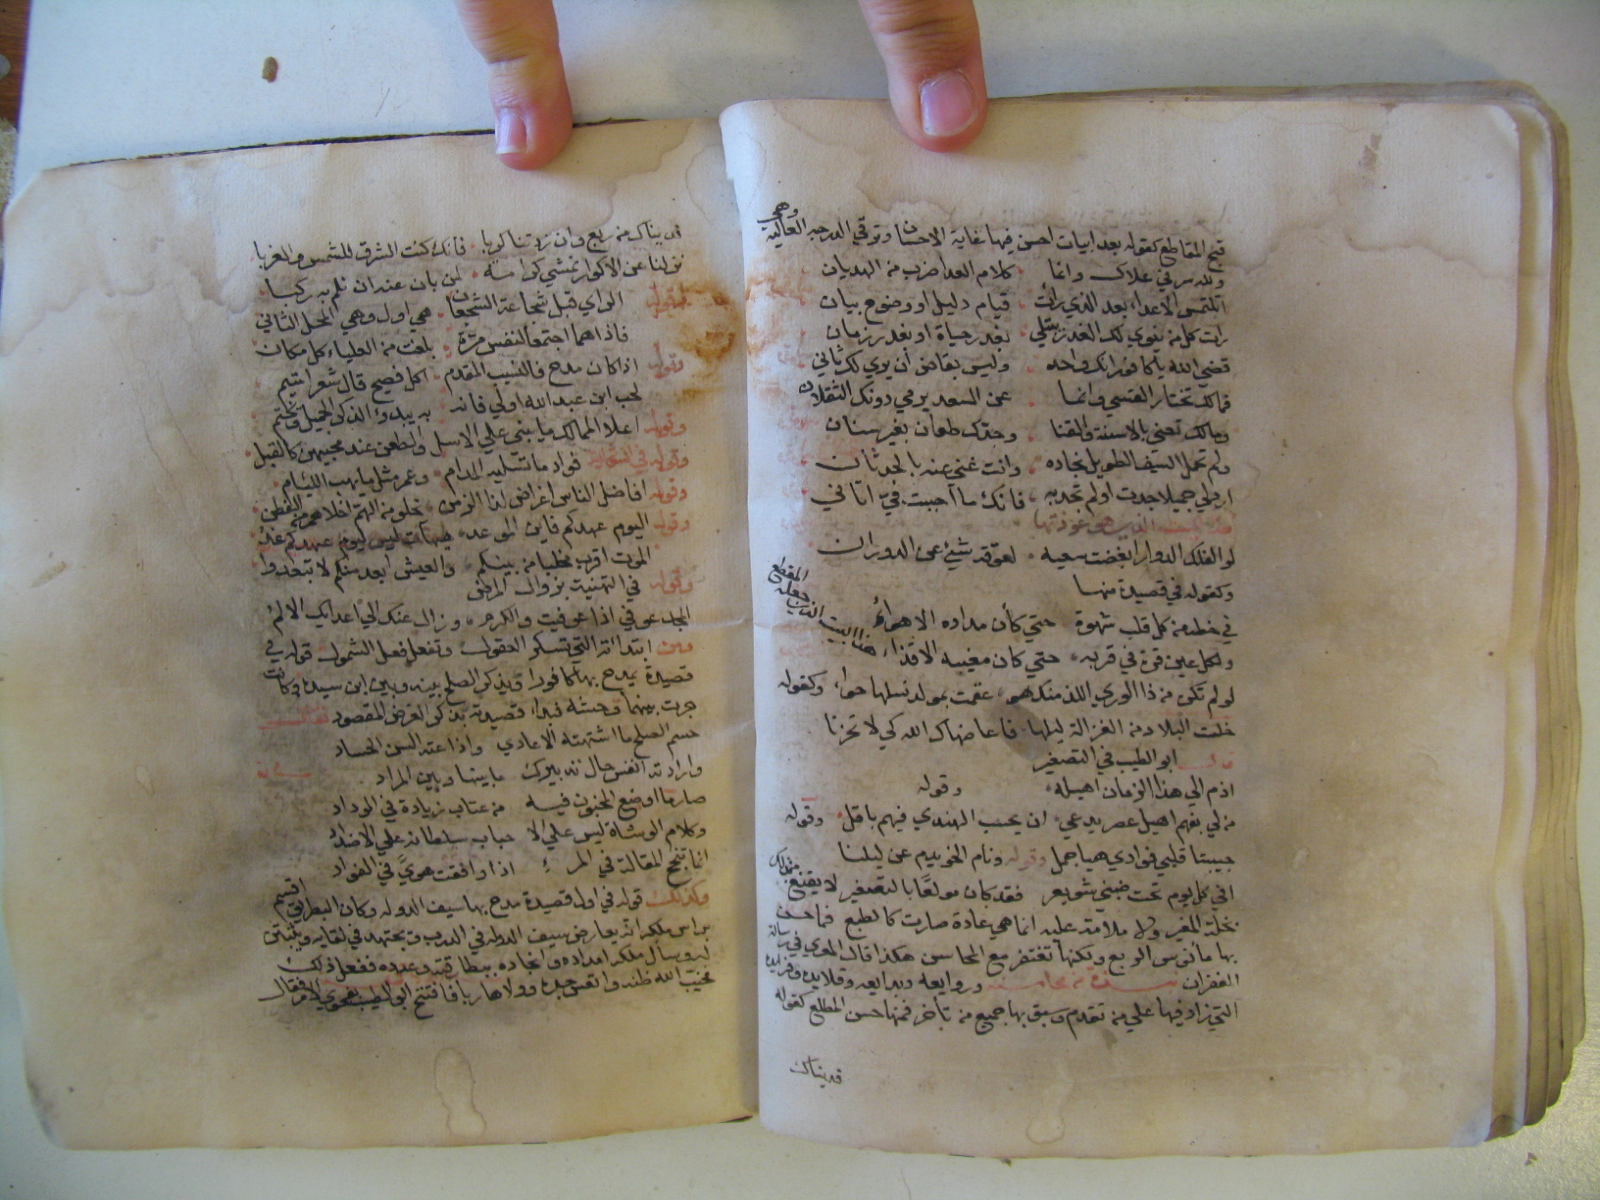 قبح المقاطع كقوله بعد ابيات احسن فيها غاية الاحسان وترقي الدرجه العالية وهي
ولله سر في علاك وانما كلام العدا ضرب من الهديان
اتلتمس الاعداء بعد الذي رات قيام دليل او وضوح بيان
رات كل من ينوي لك الغدر يبتلي بغدر حياة او بغدر زمان
قضى الله يا كافور انك واحد وليس بقاض أن يري لك ثاني
فمالك تختار القسي وانما عن السعد يرمي دونك الثقلان
ومالك تعني بالاسنة والقنا وجدك طعان بغير سنان
ولم تحمل السيف الطويل نجاده وانت غني عنه بالحدثان
ارد لي جميلا جدت او لم تجد به فانك ما احببت فيّ اتاني
لو الفلك الدوار ابغضت سعيه لعوقه شيء عن الدوران
وكقوله في قصيدة منها
في خطه من كل قلب شهوة حتي كأن مداده الاهواءُ
ولكل عين قرة في قربه حتي كان مغيبه الاقذاء هذا البيت الذي جعله المقطع
لو لم تكن من ذا الوري اللذ منك هو عقمت بمولد نسلها حواء وكقوله
خلت البلاد من الغزالة ليلها فاعاضهاك الله كي لا تحزنا
ابو الطيب في التصغير
اذم الي هذا الزمان اهيله وقوله
من لي بفهم اهيل عصر يدعي ان يحسب الهندي فيهم باقل وقوله
حبيبتا قلبي فوادي هيا جمل وقوله ونام الخويدم عن ليلنا
افي كل يوم تحت ضبني شويعر فقد كان مولعا بالتصغير لا يقنع من ذلك
بخلة المغير ولا ملامة عليه انما هي عادة صارت كالطبع فما حسن
بها مانوس الربع ولكنها تغتفر مع المحاسن هكذا قال المعري في رسالة
الغفران وروايعه وبدايعه وقلايده وفرايده
التي زاد فيها علي من تقدم وسبق بها جميع من تأخر فمنها حسن المطلع كقوله
فديناك
فديناك من ربع وان زدتنا كربا فانك كنت الشرق للشمس والغربا
نزلنا عن الاكوار نمشي كرامة لمن بان عنه ان نلم به ركبا
وقوله الراي قبل شجاعة الشجعان هي اول وهي المحل الثاني
فاذا هما اجتمعا لنفس مرة بلغت من العلياء كل مكان
وقوله اذا كان مدح فالنسيب المقدم اكل فصيح قال شعرا متيم
لحب ابن عبد الله اولي فانه به يبدؤ الذكر الجميل ويختم
وقوله اعلا الممالك ما يبني علي الاسل والطعن عند محبيهن كالقبل
وقوله فواد ما تسليه المدام وعمر مثل ما يهب الليئام
وقوله افاضل الناس اغراض لذا الزمن يخلو من الهم اخلاهم من الفطن
وقوله اليوم عهدكم فاين الموعد هيهات ليس ليوم عهدكم غد
الموت اقرب مخلبا من بينكم والعيش ابعد منكم لا تبعدوا
وقوله في التهنية بزوال المرض
المجد عوفي اذا عوفيت والكرم وزال عنك الي اعدايك الالمُ
ومن ابتدائه التي تسكر العقول وتفعل فعل الشمول قوله في
قصيدة يمدح بها كافورا ويذكر الصلح بينه وبين ابن سيده وكانت
جرت بينهما وحشة فبدا قصيدته بذكر الغرض المقصود
حسم الصلح ما اشتهته الاعادي واذاعته السن الحساد
وارادته انفس حال تدبيرك ما بينها وبين المراد
صار ما اوضع المخبون فيه من عتاب زيادة في الوداد
وكلام الوشاة ليس علي الا حباب سلطانه علي الاضداد
انما تنجح المقالة في المرء اذا وافقت هويً في الفواد
وكذلك قوله في اول قصيدة مدح بها سيف الدوله وكان البطريق اقسم
براس ملكه انه يعارض سيف الدولة في الدرب ويجتهد في لقايه
وسال ملكه امداده وانجاده ببطارقته وعدده ففعل ذلك
فخيب الله ظنه واتعس جده وولا هاربا فافتتح ابو الطيب فقال